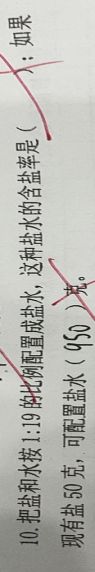 10. 把盐和水按 1:19 的比例配置成盐水，这种盐水的含盐率是（ ）；如果
现有盐 50 克，可配置盐水（ 950 ）克。